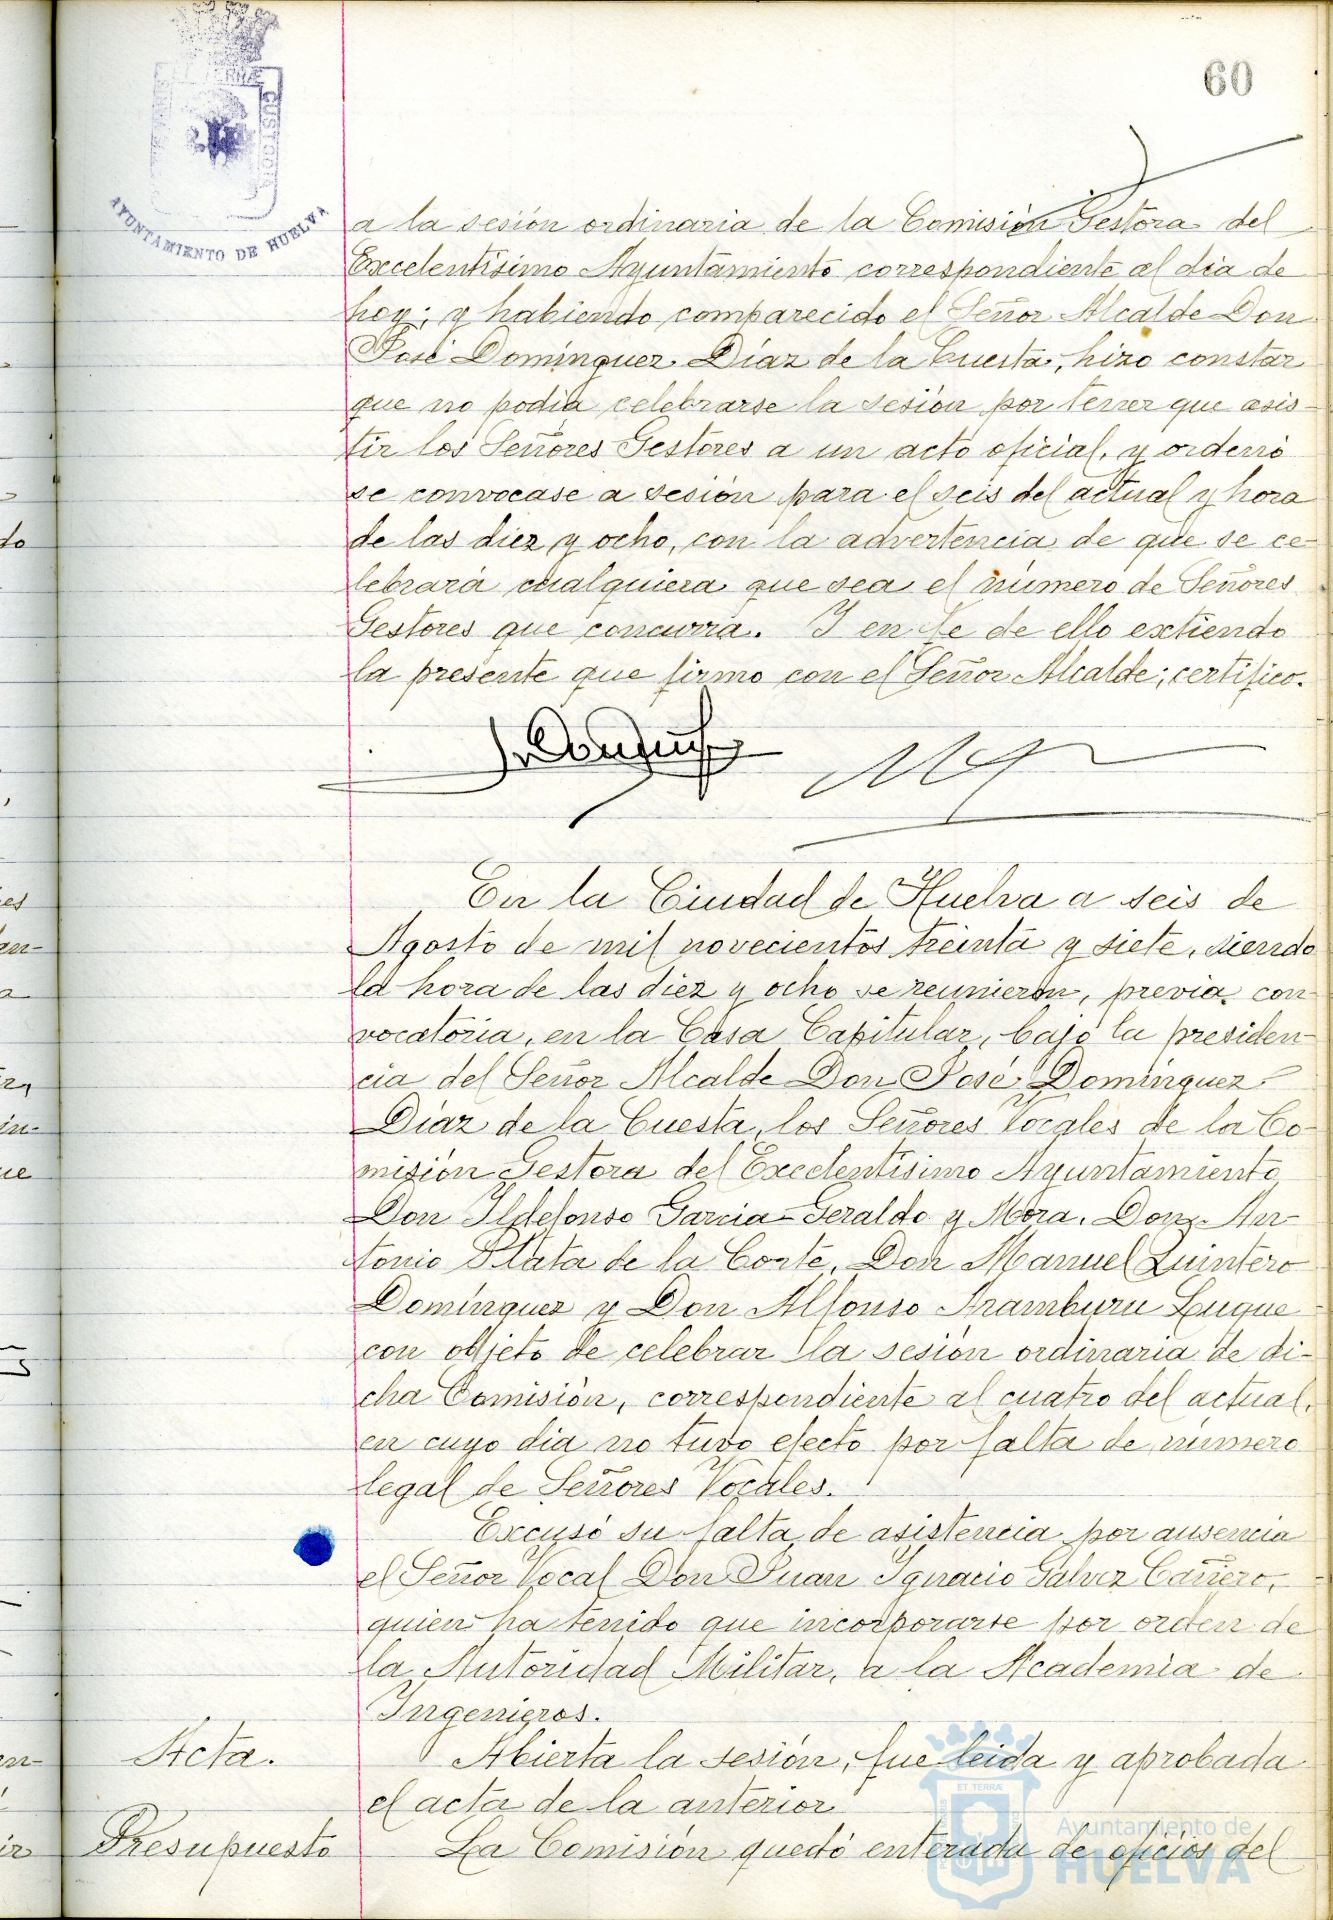 60
ET TERRÆ
CUSTODIA
AYUNTAMIENTO DE HUELVA
a la sesión ordinaria de la Comisión Gestora del
Excelentísimo Ayuntamiento correspondiente al día de
hoy; y habiendo comparecido el Señor Alcalde Don
José Domínguez Díaz de la Cuesta, hizo constar
que no podía celebrarse la sesión por tener que asis-
tir los Señores Gestores a un acto oficial, y ordenó
se convocase a sesión para el seis del actual y hora
de las diez y ocho, con la advertencia de que se ce-
lebrará cualquiera que sea el número de Señores
Gestores que concurra. Y en fe de ello extiendo
la presente que firmo con el Señor Alcalde; certifico.
En la Ciudad de Huelva a seis de
Agosto de mil novecientos treinta y siete, siendo
la hora de las diez y ocho se reunieron, previa con-
vocatoria, en la Casa Capitular, bajo la presiden-
cia del Señor Alcalde Don José Domínguez
Díaz de la Cuesta, los Señores Vocales de la Co-
misión Gestora del Excelentísimo Ayuntamiento
Don Ildefonso García-Geraldo y Mora, Don An-
tonio Plata de la Corte, Don Manuel Quintero
Domínguez y Don Alfonso Aramburu Luque
con objeto de celebrar la sesión ordinaria de di-
cha Comisión, correspondiente al cuatro del actual,
en cuyo día no tuvo efecto por falta de número
legal de Señores Vocales.
Excusó su falta de asistencia por ausencia
el Señor Vocal Don Juan Ignacio Gálvez Cañero,
quien ha tenido que incorporarse por orden de
la Autoridad Militar, a la Academia de
Ingenieros.
Acta. Abierta la sesión, fue leida y aprobada
el acta de la anterior
Presupuesto La Comisión quedó enterada de oficios del
ET TERRÆ
Ayuntamiento de
HUELVA